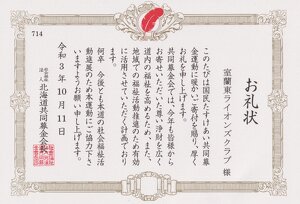 714
お礼状
室蘭東ライオンズクラブ 様
このたびは国民たすけあい共同募
金運動に暖かいご寄付を賜り、厚く
お礼を申し上げます。
共同募金会では、今年も皆様から
お寄せいただいた尊い浄財を広く
道内の福祉を高めるため、また、
地域での福祉活動推進のため有効
に活用させていただく計画であり
ます。
何卒、今後とも本道の社会福祉活
動進展のため本運動にご協力下さ
いますようお願い申し上げます。
令和3年10月11日
社会福祉法人 北海道共同募金会